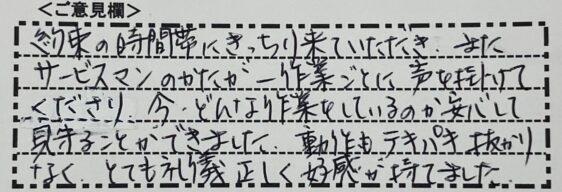 ＜ご意見欄＞
約束の時間帯にきっちり来ていただき、また
サービスマンのかたが一作業ごとに声を掛けて
くださり、今、どんな作業をしているのか安心して
見守ることができました。動作もテキパキ抜かり
なく、とても礼儀正しく好感が持てました。